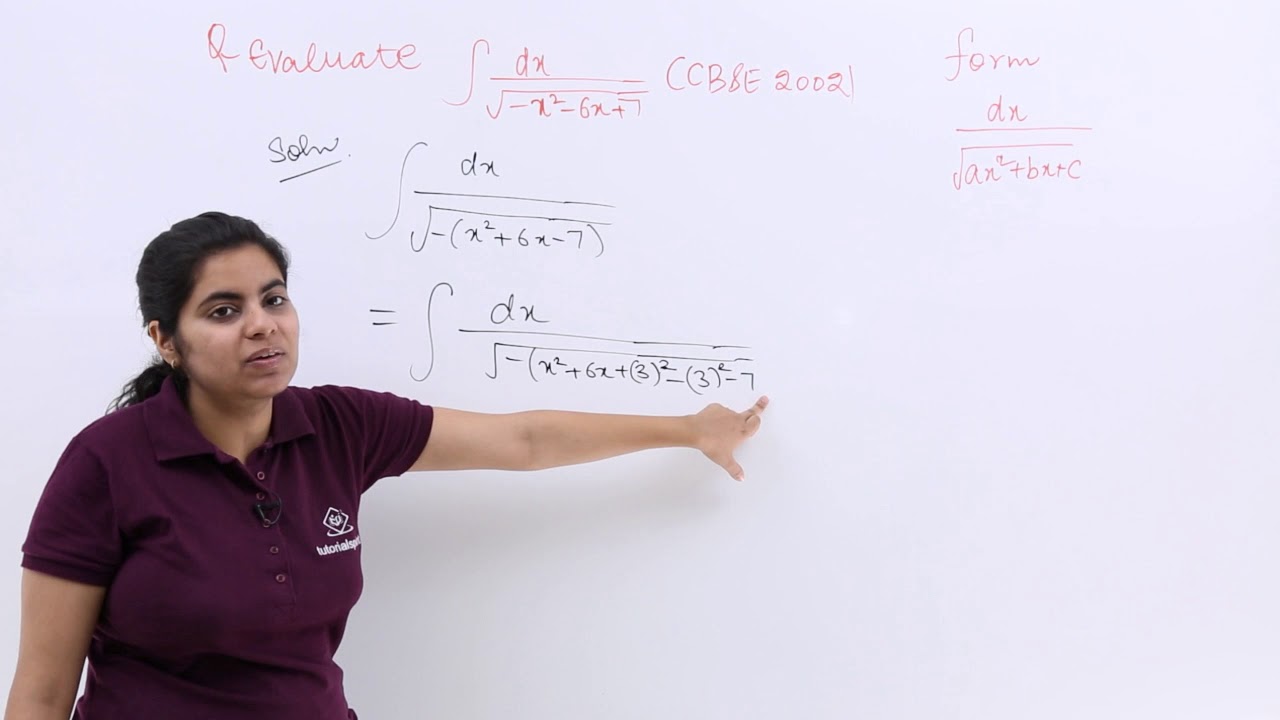 Q Evaluate ∫ dx / √(-x² - 6x + 7) (CBSE 2002)
form
dx / √(ax² + bx + c)
Soln.
∫ dx / √(-(x² + 6x - 7))
= ∫ dx / √(-(x² + 6x + (3)² - (3)² - 7